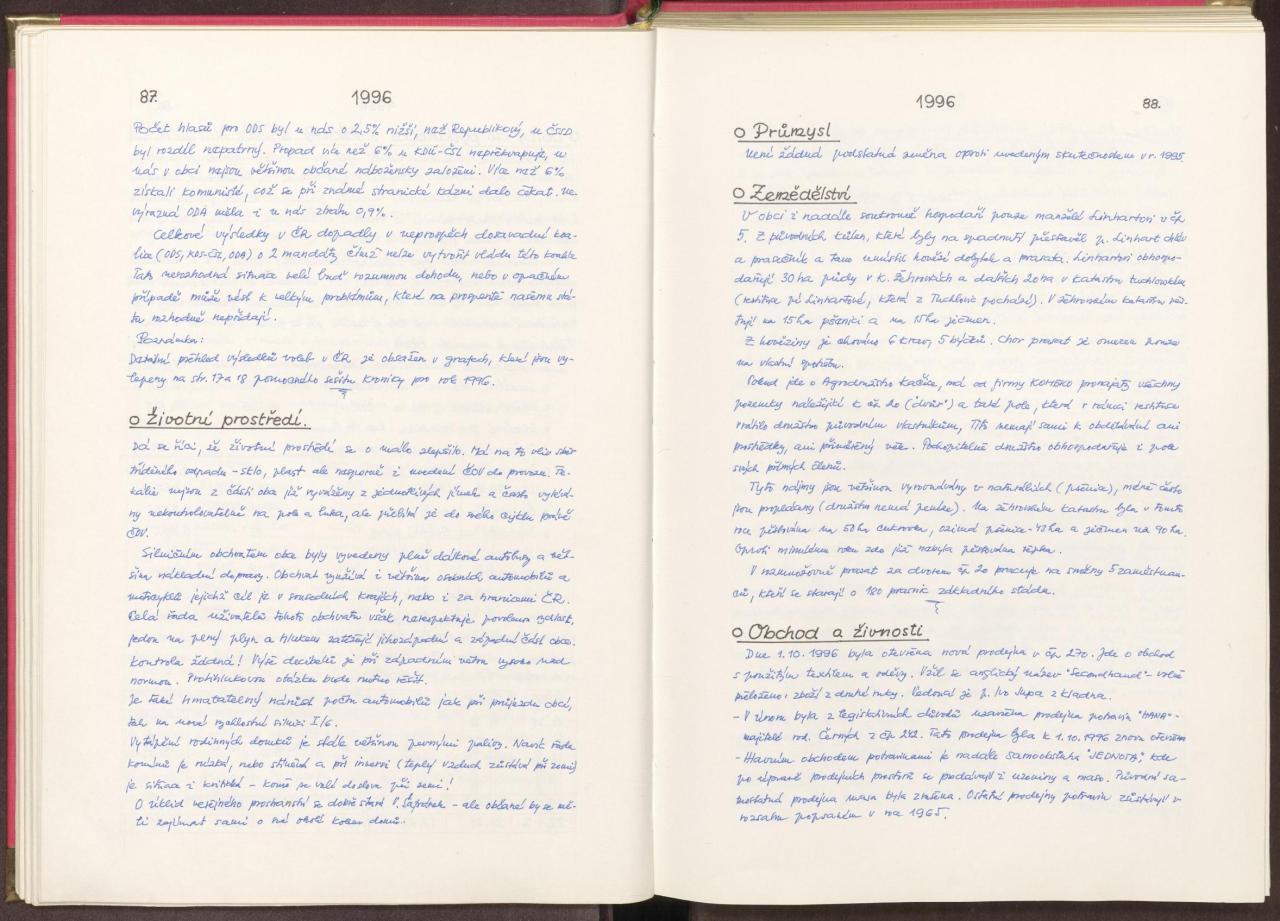 87. 1996
Počet hlasů pro ODS byl u nás o 2,5% nižší, než Republikový, u ČSSD
byl rozdíl nepatrný. Propad více než 6% u KDU-ČSL nepřekvapuje, u
nás v obci nejsou většinou občané nábožensky založeni. Více než 6%
získali komunisté, což se při známé stranické kázni dalo čekat. Ne
výrazná ODA měla i u nás ztrátu 0,9%.
Celkové výsledky v ČR dopadly v neprospěch dosavadní koa-
lice (ODS, KDS-ČSL, ODA) o 2 mandáty čímž nelze vytvořit vládu této koalice
Tato nerozhodná situace velí buď rozumnou dohodu, nebo v opačném
případě může vést k velkým problémům, které na prosperitě našemu stá-
tu rozhodně nepřidají.
Poznámka:
Detailní přehled výsledků voleb v ČR je obsažen v grafech, které jsou vy-
lepeny na str. 17 a 18 pomocného sešitu Kroniky pro rok 1996.
o Životní prostředí.
Dá se říci, že životní prostředí se o málo zlepšilo. Má na to vliv sběr
tříděného odpadu - sklo, plast ale nesporně i uvedení ČOV do provozu. Fe-
kálie nejsou z části obce již vyváženy z jednotlivých jímek a často vylévá-
ny nekontrolovatelně na pole a luka, ale přečistí je do svého cyklu právě
ČOV.
Silničním obchvatem obce byly vyvedeny plně dálkové autobusy a vět-
šina nákladní dopravy. Obchvat využívá i většina osobních automobilů a
motocyklů jejichž cíl je v sousedních krajích, nebo i za hranicemi ČR.
Celá řada uživatelů tohoto obchvatu však nerespektuje povolenou rychlost,
jedou na plný plyn a hlukem zatěžují jihozápadní a západní část obce.
Kontrola žádná! Výše decibelů je při západním větru vysoko nad
normou. Protihlukovou otázku bude nutno řešit.
Je také hmatatelný nárůst počtu automobilů jak při průjezdu obcí,
tak na nové rychlostní silnici I/6.
Vytápění rodinných domků je stále většinou pevnými palivy. Navíc řada
komínů je nízká, nebo stíněná a při inversi (teplý vzduch zůstává při zemi)
je situace i kritická - kouř se valí doslova při zemi!
O úklid veřejného prostranství se dobře stará V. Šafránek - ale občané by se mě-
li zajímat sami o své okolí kolem domů.
1996 88.
o Průmysl
Není žádná podstatná změna oproti uvedeným skutečnostem v r. 1995.
o Zemědělství
V obci i nadále soukromě hospodaří pouze manželé Linhartovi v čp.
5. Z původních kůlen, které byly na spadnutí přestavěl p. Linhart chlév
a prasečník a tam umístil hovězí dobytek a prasata. Linhartovi obhospo-
dařují 30 ha půdy v k. Žehrovicích a dalších 20 ha v katastru tuchlovickém
(restituce pí Linhartové, která z Tuchlovic pochází). V žehrovickém katastru pěs-
tují na 15 ha pšenici a na 15 ha ječmen.
Z hovězin je chováno 6 krav, 5 býčků. Chov prasat je omezen pouze
na vlastní spotřebu.
Pokud jde o Agrodružstvo Kačice, má od firmy KOMSKO pronajaty všechny
pozemky náležející k čp. 20 ("dvůr") a také pole, která v rámci restituce
vrátilo družstvo původním vlastníkům, Tito nemají sami k obdělávání ani
prostředky, ani přiměřený věk. Pochopitelně družstvo obhospodařuje i pole
svých přímých členů.
Tyto nájmy jsou většinou vyrovnávány v naturáliích (pšenice), méně často
jsou proplaceny (družstvo nemá peníze). Na žehrovickém katastru byla v tomto
roce pěstována na 50 ha cukrovka, ozimá pšenice - 43 ha a ječmen na 90 ha.
Oproti minulému roku zde již nebyla pěstována řepka.
V rozmnožovně prasat za dvorem čp 20 pracuje na směny 5 zaměstnan-
ců, kteří se starají o 180 prasnic základního stáda.
o Obchod a živnosti
Dne 1.10.1996 byla otevřena nová prodejna v čp. 270. Jde o obchod
s použitým textilem a oděvy. Vžil se anglický název "Secondhand" - volně
přeloženo: zboží z druhé ruky. Vedoucí je p. Ivo Jupa z Kladna.
- V únoru byla z legislativních důvodů uzavřena prodejna potravin "HANA" -
majitelé rod. Černých z čp 242. Tato prodejna byla k 1.10.1996 znovu otevřena
- Hlavním obchodem potravinami je nadále samoobsluha "JEDNOTA", kde
po úpravě prodejních prostorů se prodávají i uzeniny a maso. Původní sa-
mostatná prodejna masa byla zrušena. Ostatní prodejny potravin zůstávají v
rozsahu popsaném v roce 1965.